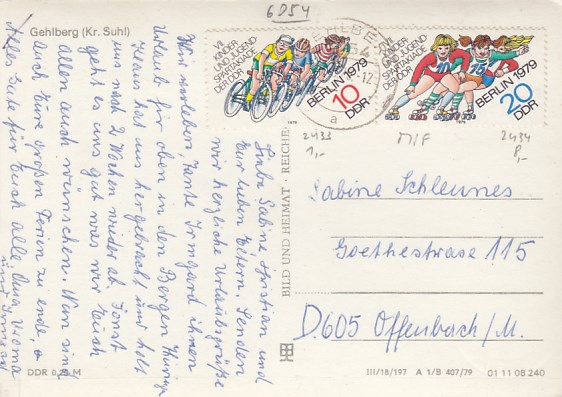 6054
Gehlberg (Kr. Suhl)
VII.
KINDER
UND JUGEND
SPARTAKIADE
DER DDR
BERLIN 1979
10
DDR
VII.
KINDER
UND JUGEND
SPARTAKIADE
DER DDR
BERLIN 1979
20
DDR
1979
1979
a
2433
1,-
M/F
2434
P,-
Liebe Sabine Christian und
Eure lieben Eltern. Senden
wir herzliche Urlaubsgrüße
Wir verleben Tante Irmgard ihren
Urlaub für oben in den Bergen
hat uns hergebracht und holt
uns nach 2 Wochen wieder ab. Sonst
geht es uns gut was wir Euch
allen auch wünschen. Nun sind
auch Eure großen Ferien zu ende,
Alles Gute für Euch alle
und Irmgard
BILD UND HEIMAT · REICHE
Sabine Schleunes
Goethestrase 115
D.605 Offenbach/M.
DDR 0,25 M
III/18/197 A 1/B 407/79 01 11 08 240